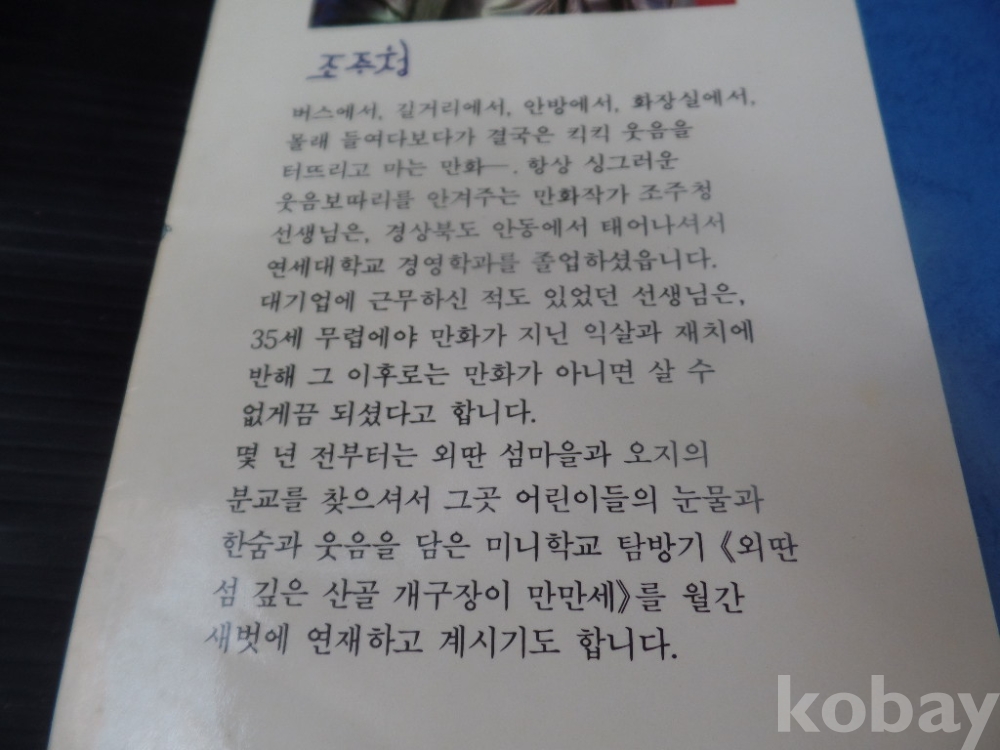 조주청
버스에서, 길거리에서, 안방에서, 화장실에서,
몰래 들여다보다가 결국은 킥킥 웃음을
터뜨리고 마는 만화—. 항상 싱그러운
웃음보따리를 안겨주는 만화작가 조주청
선생님은, 경상북도 안동에서 태어나셔서
연세대학교 경영학과를 졸업하셨읍니다.
대기업에 근무하신 적도 있었던 선생님은,
35세 무렵에야 만화가 지닌 익살과 재치에
반해 그 이후로는 만화가 아니면 살 수
없게끔 되셨다고 합니다.
몇 년 전부터는 외딴 섬마을과 오지의
분교를 찾으셔서 그곳 어린이들의 눈물과
한숨과 웃음을 담은 미니학교 탐방기 《외딴
섬 깊은 산골 개구장이 만만세》를 월간
새벗에 연재하고 계시기도 합니다.
kobay